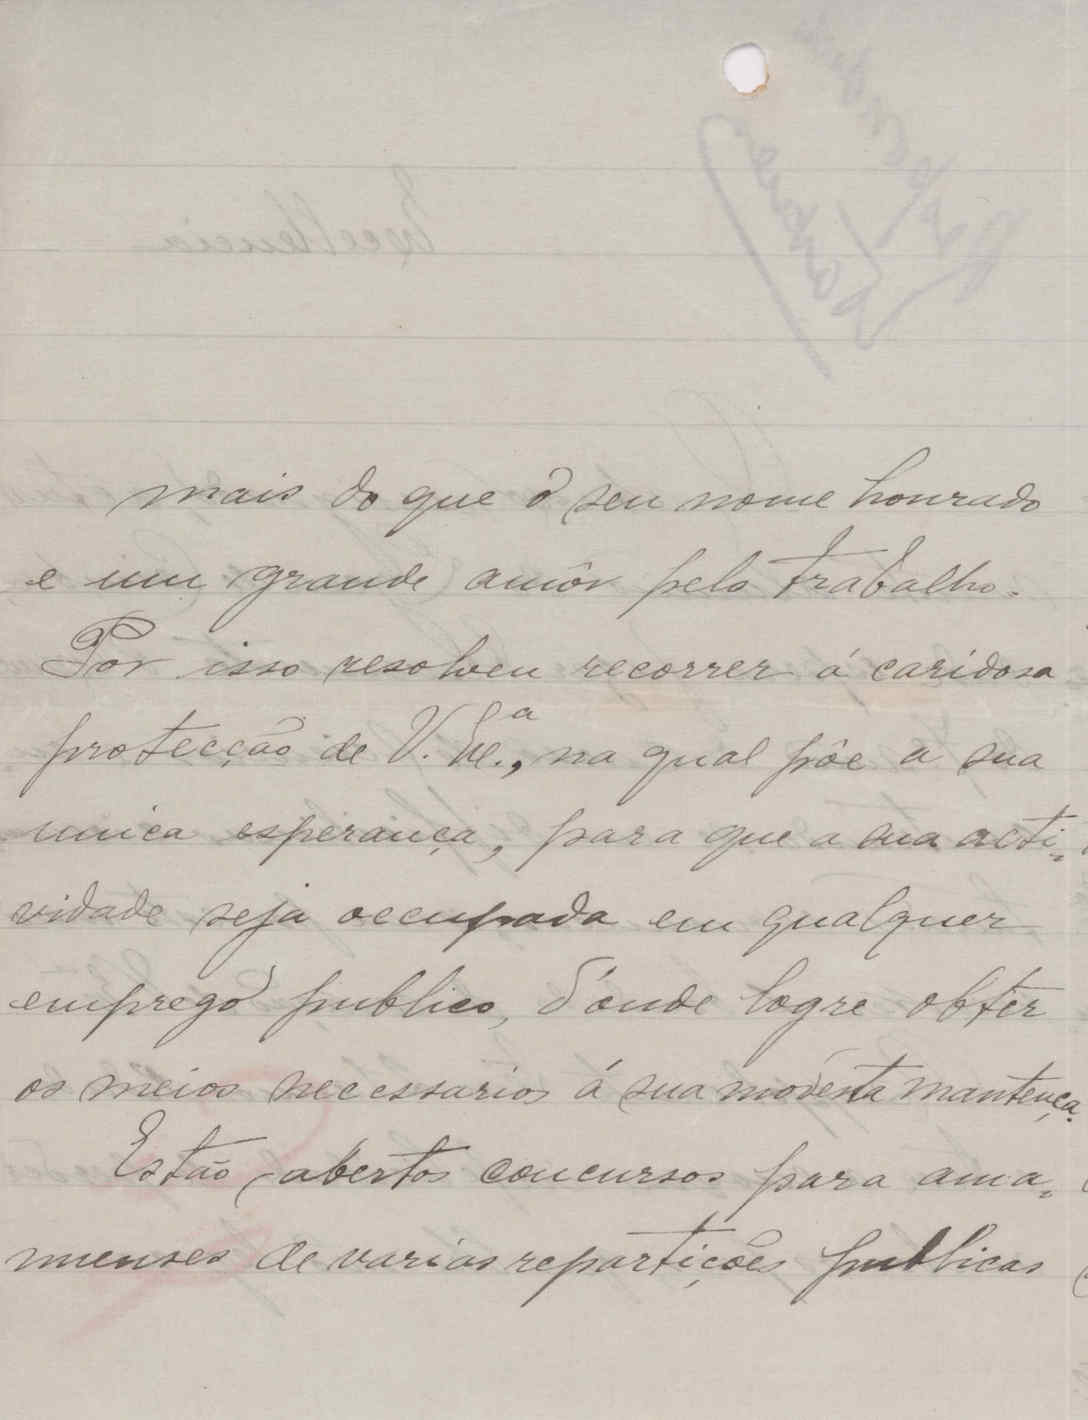 mais do que o seu nome honrado
e um grande amôr pelo trabalho.
Por isso resolveu recorrer á caridosa
protecção de V. Ex.ª, na qual põe a sua
unica esperança, para que a sua acti=
vidade seja occupada em qualquer
emprego publico, d'onde logre obter
os meios necessarios á sua modesta mantença.
Estão abertos concursos para ama=
nuenses de varias repartições publicas